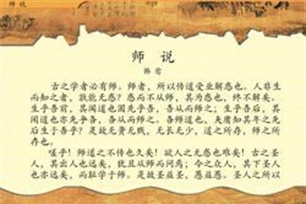 师 说
韩 愈
古之学者必有师。师者，所以传道受业解惑也。人非生
而知之者，孰能无惑？惑而不从师，其为惑也，终不解矣。
生乎吾前，其闻道也固先乎吾，吾从而师之；生乎吾后，其
闻道也亦先乎吾，吾从而师之。吾师道也，夫庸知其年之先
后生于吾乎？是故无贵无贱，无长无少，道之所存，师之所
存也。
嗟乎！师道之不传也久矣！欲人之无惑也难矣！古之圣
人，其出人也远矣，犹且从师而问焉；今之众人，其下圣人
也亦远矣，而耻学于师。是故圣益圣，愚益愚。圣人之所以